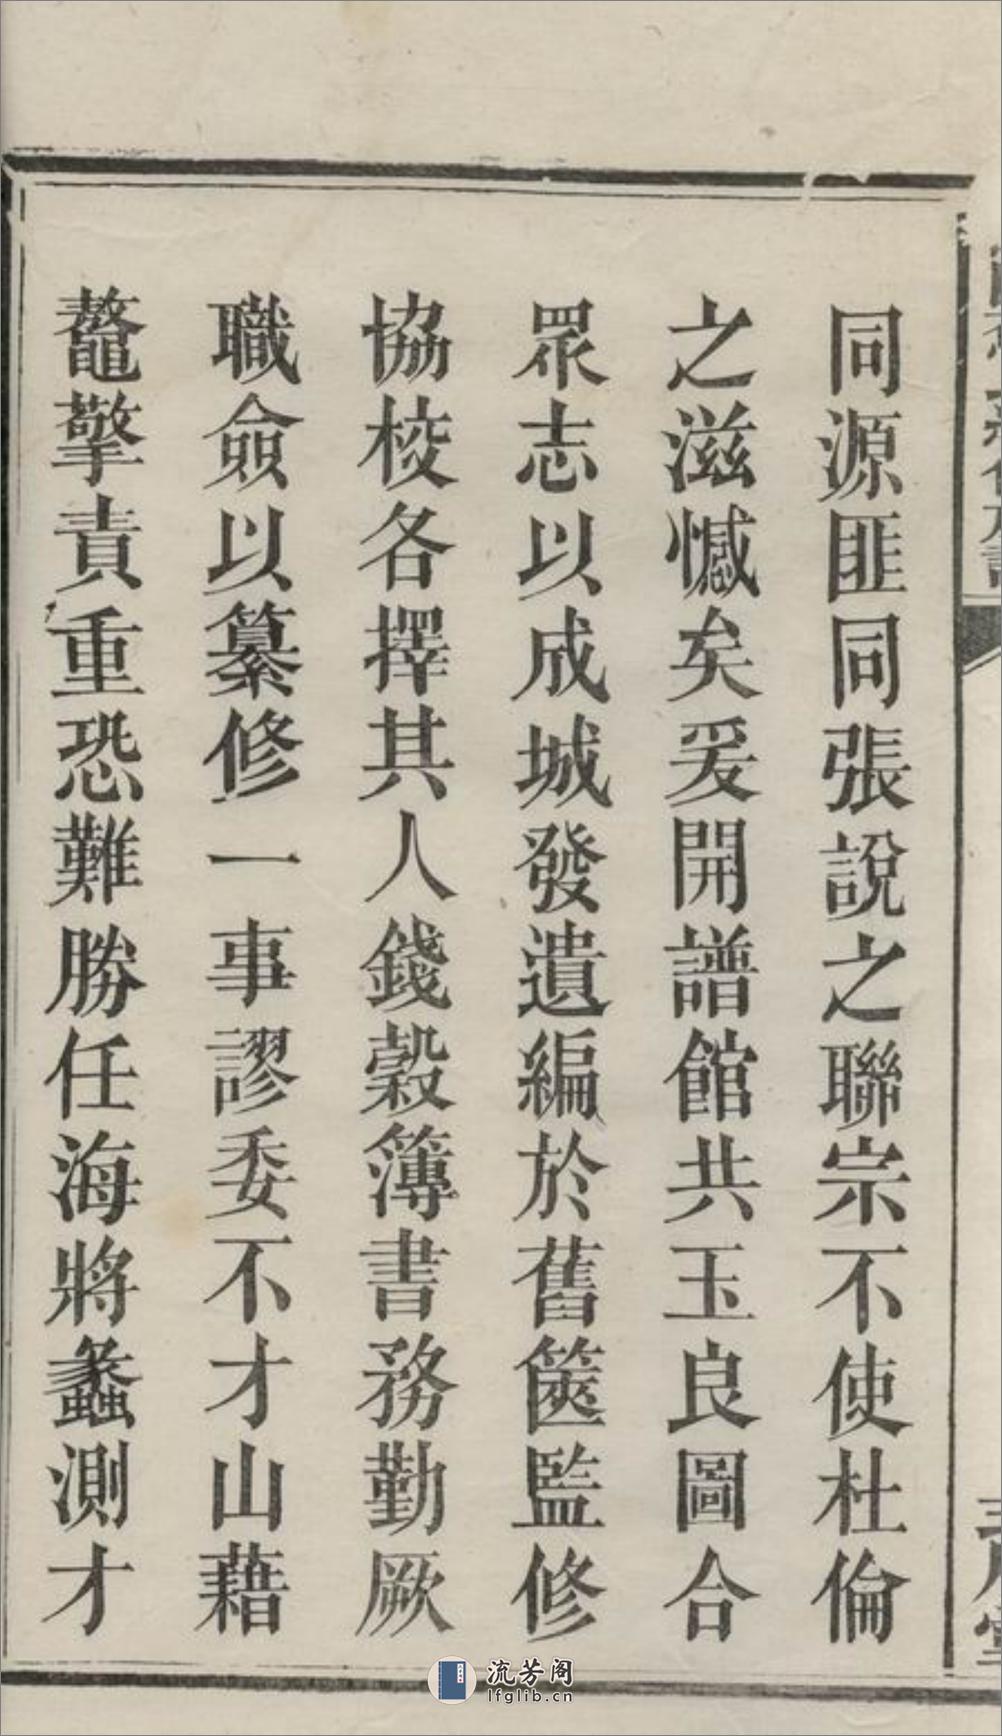 同源匪同張說之聯宗不使杜倫
之滋憾矣爰開譜館共玉良圖合
眾志以成城發遺編於舊篋監修
協校各擇其人錢穀簿書務勤厥
職僉以纂修一事謬委不才山藉
鼇擎責重恐難勝任海將蠡測才
流芳阁
lfglib.cn